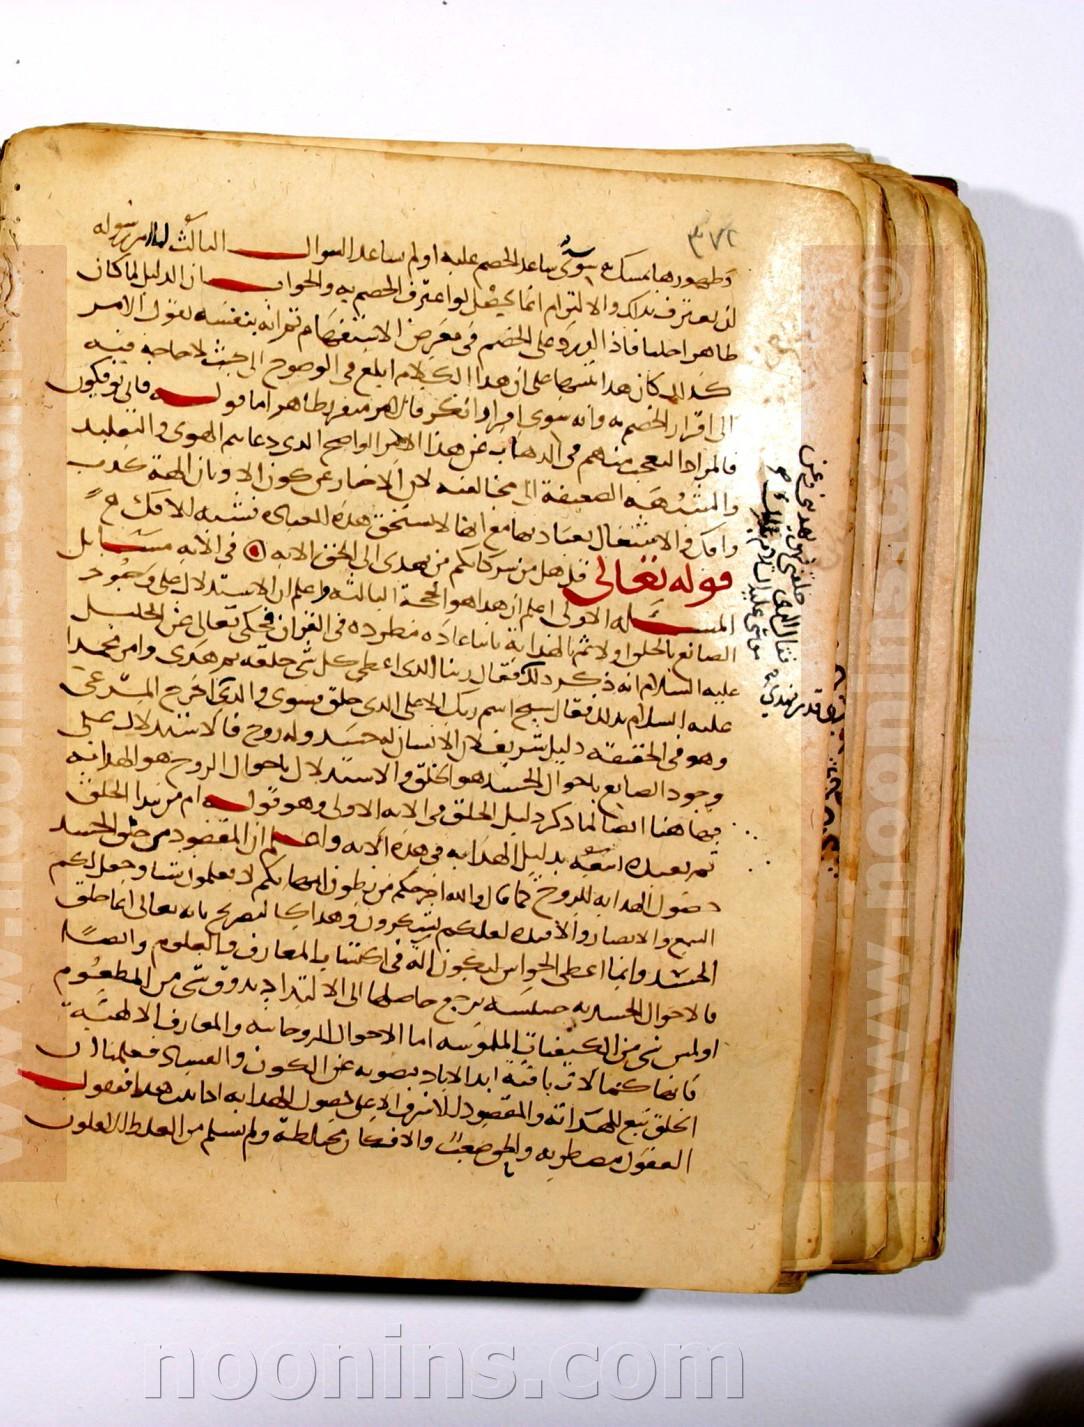 ٣٧٢
وظهورها تمسك به سوى ساعد الخصم عليه او لم يساعد السوال الثالث امر رسوله
لان يعترف بذلك والالتزام انما يحصل لو اعترف الخصم به والجواب ان الدليل لما كان
ظاهرا جليا فاذا اورد على الخصم فى معرض الاستفهام ثم انه بنفسه يقول الامر
كذلك كان هذا تنبيها على ان هذا الكلام ابلغ فى الوضوح الى حيث لا حاجه فيه
الى اقرار الخصم به وانه سوى اقر او انكر فالامر متقرر ظاهر اما قوله فانى توفكون
فالمراد التعجب منهم فى الذهاب عن هذا الامر الواضح الذى دعاهم الهوى والتقليد
والشبهه الضعيفة الى مخالفته لان الاخبار عن كون الاوثان الهة كذب
وافك والاشتغال بعبادتها مع انها لا تستحق هذه العبادة تشبه للافك
قوله تعالى قل هل من شركائكم من يهدى الى الحق الايه فى الايه مسايل
المسئله الاولى اعلم ان هذا هو الحجة الثالثه واعلم ان الاستدلال على وجود
الصانع بالخلق اولا ثم بالهداية ثانيا عادة مطرده فى القران فحكى تعالى عن الخليل
عليه السلام انه ذكر ذلك فقال ربنا الذى اعطى كل شى خلقه ثم هدى وامر محمدا
عليه السلام بذلك فقال سبح اسم ربك الاعلى الذى خلق فسوى والذى اخرج المرعى
وهو فى الحقيقه دليل شريف لان الانسان له جسد وله روح فالاستدلال على
وجود الصانع باحوال الجسد هو الخلق والاستدلال باحوال الروح هو الهدايه
فهاهنا ايضا لما ذكر دليل الخلق فى الايه الاولى وهو قوله ام من يبدا الخلق
ثم يعيده اتبعه بدليل الهدايه فى هذه الايه واعلم ان المقصود من خلق الجسد
حصول الهدايه للروح كما قال والله اخرجكم من بطون امهاتكم لا تعلمون شيا وجعل لكم
السمع والابصار والافيده لعلكم تشكرون وهذا كالتصريح بانه تعالى انما خلق
الجسد وانما اعطى الحواس لتكون اله فى اكتساب المعارف والعلوم وايضا
فالاحوال الجسديه خسيسه يرجع حاصلها الى الالتذاذ بذوق شى من المطعوم
او لمس شى من الكيفيات الملموسه اما الاحوال الروحانيه والمعارف الالهية
فانها كمالات باقية ابد الاباد مصونه عن الكون والفساد فعلمنا ان
الخلق تبع للهداية والمقصود الاشرف الاعلى حصول الهدايه اذا ثبت هذا فنقول
العقول مضطربه والحق صعب والافكار مختلطة ولم يسلم من الغلط الا الاقلون
خلقنى فهو يهدينى وعن
موسى عليه السلام
noonins.com
www.noonins.com ©